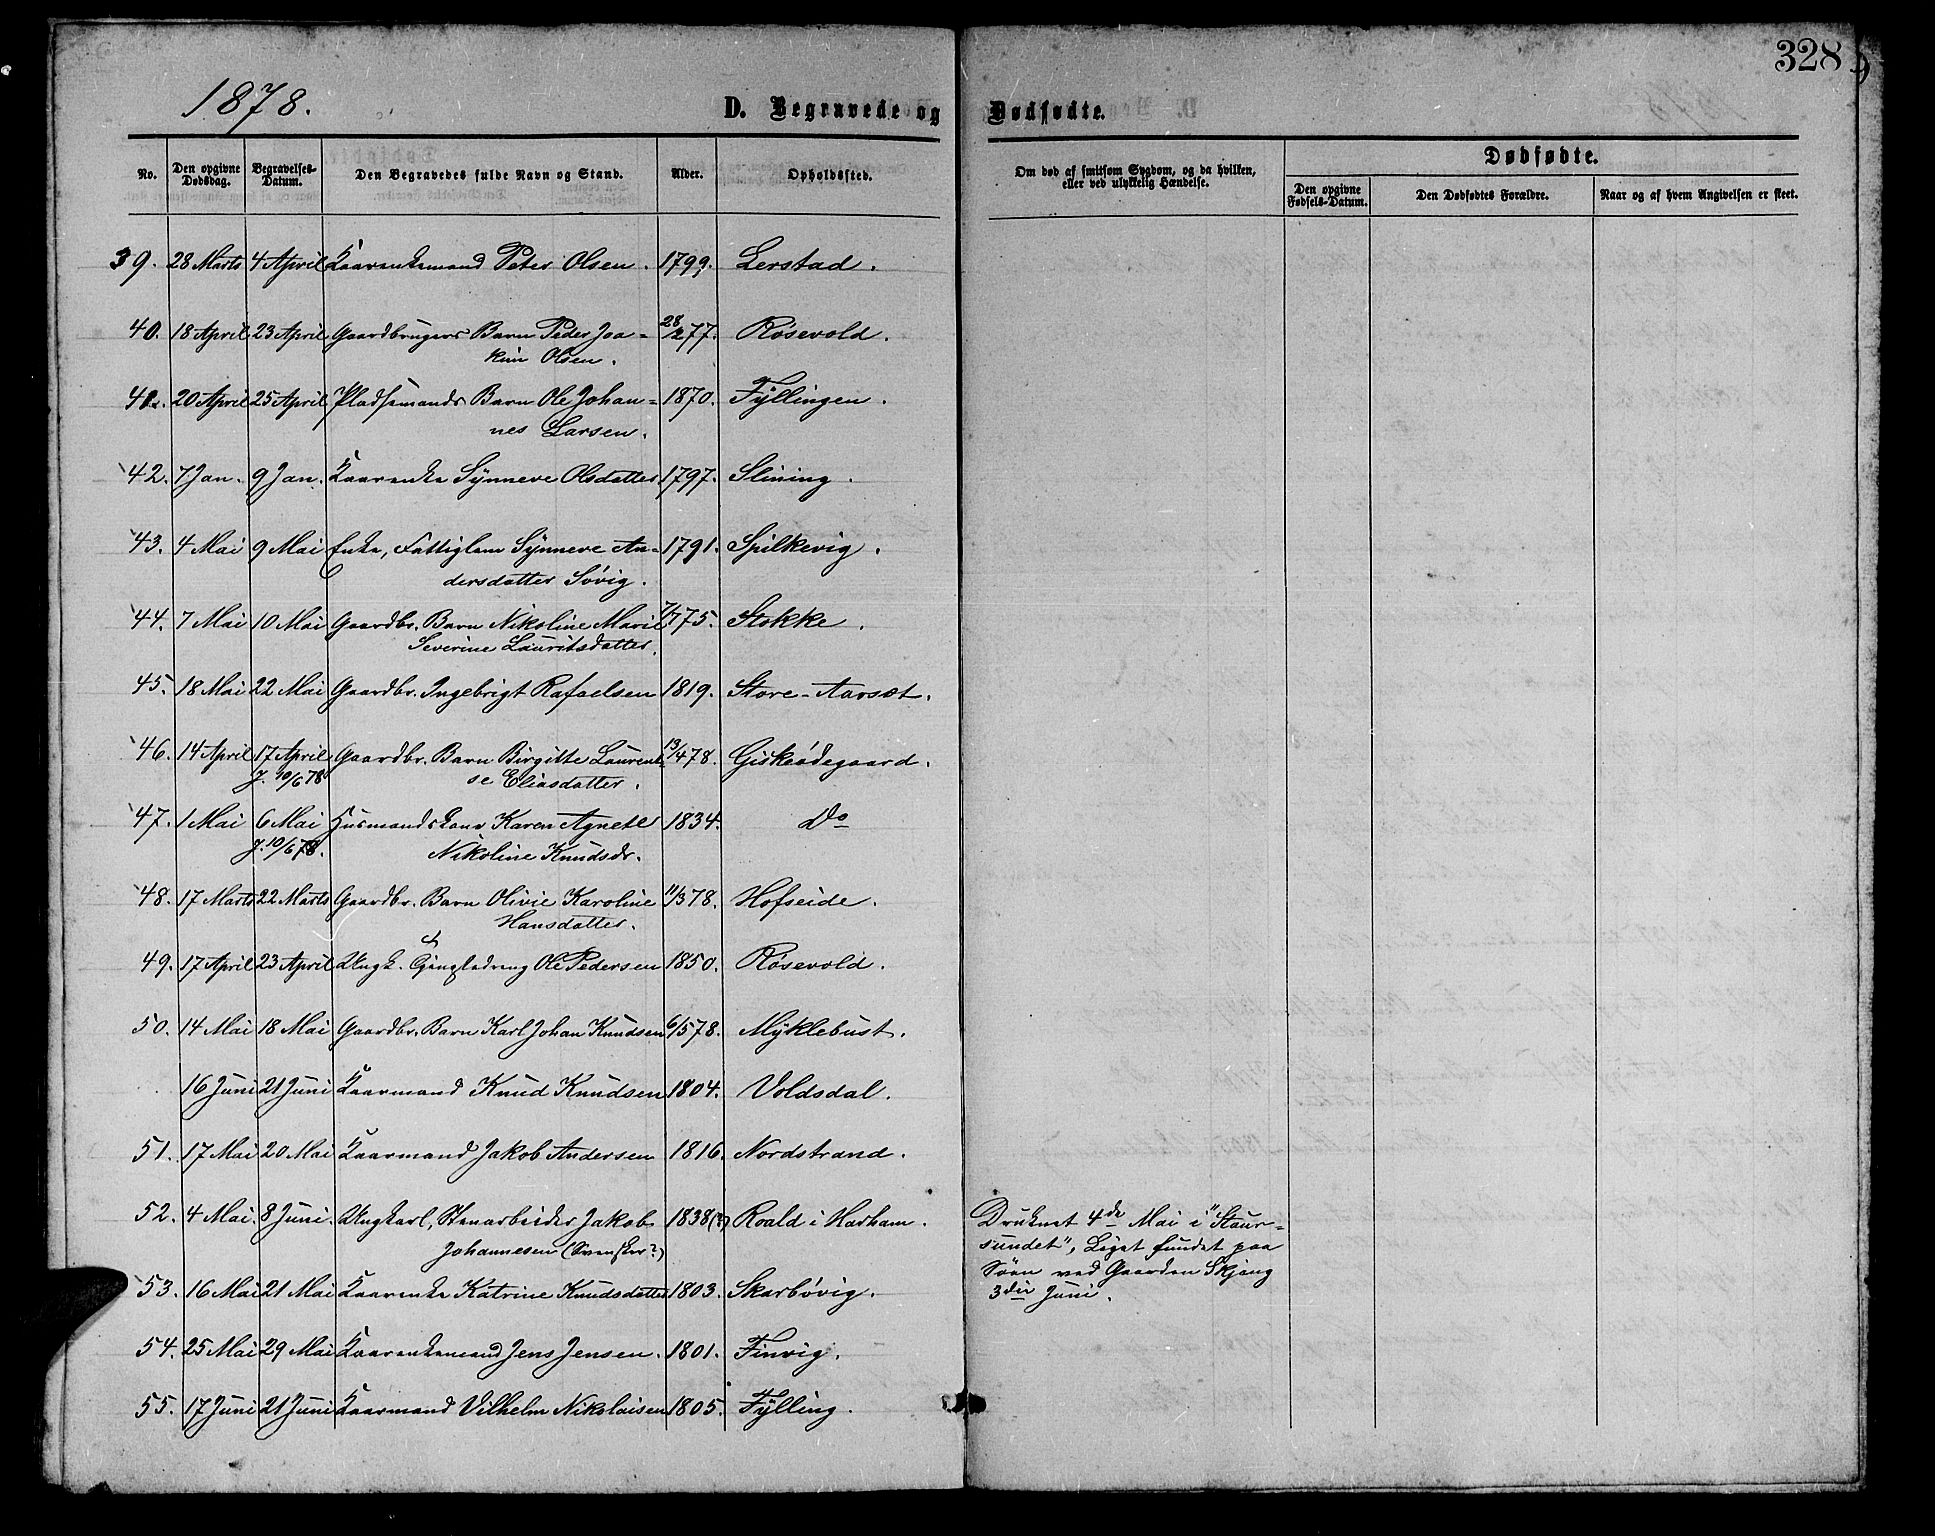 328
1878.
D. Begravede og Dødfødte.
No. Den opgivne Dødsdag. Begravelses-Datum. Den Begravedes fulde Navn og Stand. Alder. Opholdssted. Om død af smitsom Sygdom, og da hvilken, eller ved ulykkelig Hændelse. Dødfødte.
Den opgivne Fødsels-Datum. Den Dødfødtes Forældre. Naar og af hvem Angivelsen er skeet.
39. 28 Marts 4 April Kaarenkemand Peter Olsen. 1799. Lerstad.
40. 18 April 23 April Gaardbrugers Barn Peder Joa- 28/277. Røsevold.
kim Olsen.
41. 20 April 25 April Pladsemands Barn Ole Johan= 1870. Fyllingen.
nes Larsen.
42. 7 Jan. 9 Jan. Kaarenke Synneve Olsdatter 1797. Slining.
43. 4 Mai 9 Mai Enke, Fattiglem Synneve An= 1791. Spilkevig.
dersdatter Søvig.
44. 7 Mai 10 Mai Gaardbr. Barn Nikoline Marie 7/775. Stokke.
Severine Lauritsdatter.
45. 18 Mai 22 Mai Gaardbr. Ingebrigt Rafaelsen 1819. Store-Aarsæt.
46. 14 April 17 April Gaardbr. Barn Birgitte Laurent 13/478. Giskeødegaard.
J. 10/6 78. se Eliasdatter.
47. 1 Mai 6 Mai Husmandskone Karen Agnete 1834. Do
J. 10/6 78. Nikoline Knudsdr.
48. 17 Marts 22 Marts Gaardbr. Barn Olivie Karoline 11/378. Hofseide.
Hansdatter.
49. 17 April 23 April Ungk. Gjingsladreng Ole Pedersen 1850. Røsevold.
50. 14 Mai 18 Mai Gaardbr. Barn Karl Johan Knudsen 6/578. Myklebust.
16 Juni 21 Juni Kaarmand Knud Knudsen 1804. Voldsdal.
51. 17 Mai 20 Mai Kaarmand Jakob Andersen 1816. Nordstrand.
52. 4 Mai. 8 Juni. Ungkarl, Stenarbeider Jakob 1838(?) Roald i Harham. Druknet 4de Mai i "Staur-
Johannesen (Svensker?) sundet", Liget fundet paa
Søen ved Gaarden Skjong
53. 16 Mai 21 Mai Kaarenke Katrine Knudsdatter 1803. Skarbøvig. 3die Juni.
54. 25 Mai 29 Mai Kaarenkemand Jens Jensen. 1801. Finvig.
55. 17 Juni 21 Juni Kaarmand Vilhelm Nikolaisen 1805. Fylling.